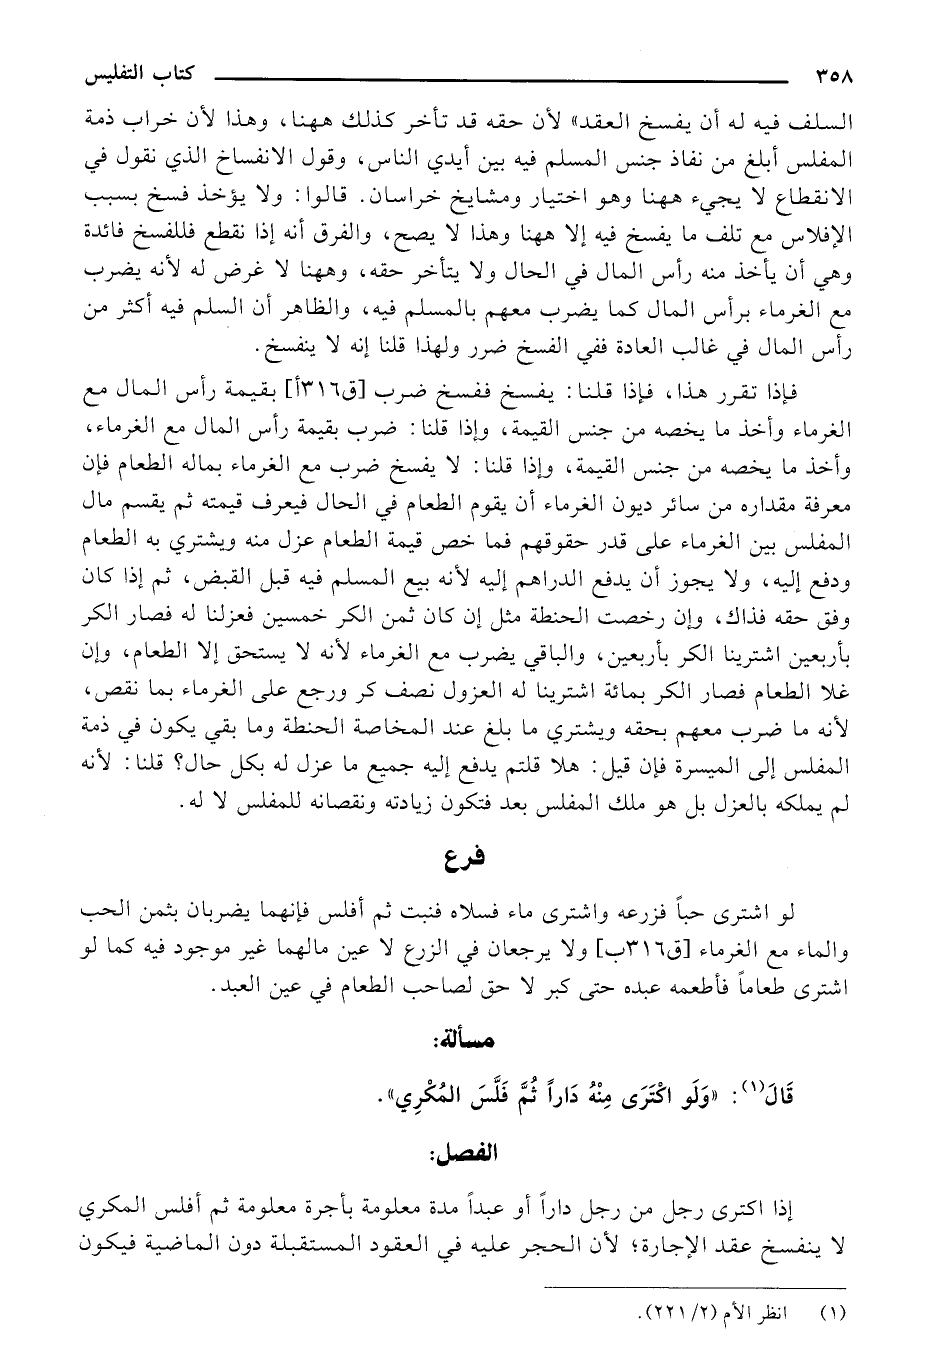 ٣٥٨ كتاب التفليس
السلف فيه له أن يفسخ العقد» لأن حقه قد تأخر كذلك ههنا، وهذا لأن خراب ذمة
المفلس أبلغ من نفاذ جنس المسلم فيه بين أيدي الناس، وقول الانفساخ الذي نقول في
الانقطاع لا يجيء ههنا وهو اختيار ومشايخ خراسان. قالوا: ولا يؤخذ فسخ بسبب
الإفلاس مع تلف ما يفسخ فيه إلا ههنا وهذا لا يصح، والفرق أنه إذا نقطع فللفسخ فائدة
وهي أن يأخذ منه رأس المال في الحال ولا يتأخر حقه، وههنا لا غرض له لأنه يضرب
مع الغرماء برأس المال كما يضرب معهم بالمسلم فيه، والظاهر أن السلم فيه أكثر من
رأس المال في غالب العادة ففي الفسخ ضرر ولهذا قلنا إنه لا ينفسخ.
فإذا تقرر هذا، فإذا قلنا: يفسخ ففسخ ضرب [ق٣١٦أ] بقيمة رأس المال مع
الغرماء وأخذ ما يخصه من جنس القيمة، وإذا قلنا: ضرب بقيمة رأس المال مع الغرماء،
وأخذ ما يخصه من جنس القيمة، وإذا قلنا: لا يفسخ ضرب مع الغرماء بماله الطعام فإن
معرفة مقداره من سائر ديون الغرماء أن يقوم الطعام في الحال فيعرف قيمته ثم يقسم مال
المفلس بين الغرماء على قدر حقوقهم فما خص قيمة الطعام عزل منه ويشتري به الطعام
ودفع إليه، ولا يجوز أن يدفع الدراهم إليه لأنه بيع المسلم فيه قبل القبض، ثم إذا كان
وفق حقه فذاك، وإن رخصت الحنطة مثل إن كان ثمن الكر خمسين فعزلنا له فصار الكر
بأربعين اشترينا الكر بأربعين، والباقي يضرب مع الغرماء لأنه لا يستحق إلا الطعام، وإن
غلا الطعام فصار الكر بمائة اشترينا له العزول نصف كر ورجع على الغرماء بما نقص،
لأنه ما ضرب معهم بحقه ويشتري ما بلغ عند المخاصة الحنطة وما بقي يكون في ذمة
المفلس إلى الميسرة فإن قيل: هلا قلتم يدفع إليه جميع ما عزل له بكل حال؟ قلنا: لأنه
لم يملكه بالعزل بل هو ملك المفلس بعد فتكون زيادته ونقصانه للمفلس لا له.
فرع
لو اشترى حباً فزرعه واشترى ماء فسلاه فنبت ثم أفلس فإنهما يضربان بثمن الحب
والماء مع الغرماء [ق٣١٦ب] ولا يرجعان في الزرع لا عين مالهما غير موجود فيه كما لو
اشترى طعاماً فأطعمه عبده حتى كبر لا حق لصاحب الطعام في عين العبد.
مسألة:
قَالَ(١): «وَلَو اكْتَرَى مِنْهُ دَاراً ثُمَّ فَلَّسَ المُكْرِي».
الفصل:
إذا اكترى رجل من رجل داراً أو عبداً مدة معلومة بأجرة معلومة ثم أفلس المكري
لا ينفسخ عقد الإجارة؛ لأن الحجر عليه في العقود المستقبلة دون الماضية فيكون
(١) انظر الأم (٢/ ٢٢١).